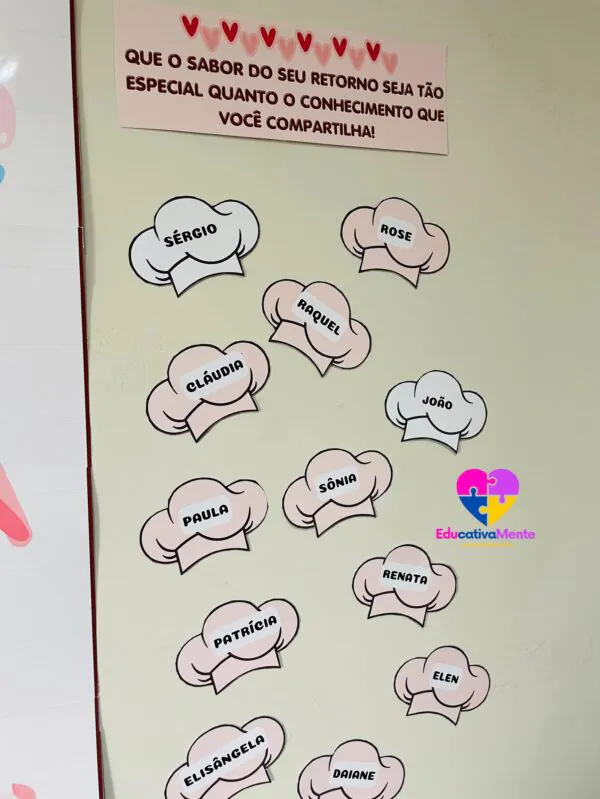 QUE O SABOR DO SEU RETORNO SEJA TÃO
ESPECIAL QUANTO O CONHECIMENTO QUE
VOCÊ COMPARTILHA!
SÉRGIO
ROSE
RAQUEL
CLÁUDIA
JOÃO
SÔNIA
PAULA
EducativaMente
RENATA
PATRÍCIA
ELEN
ELISÂNGELA
DAIANE